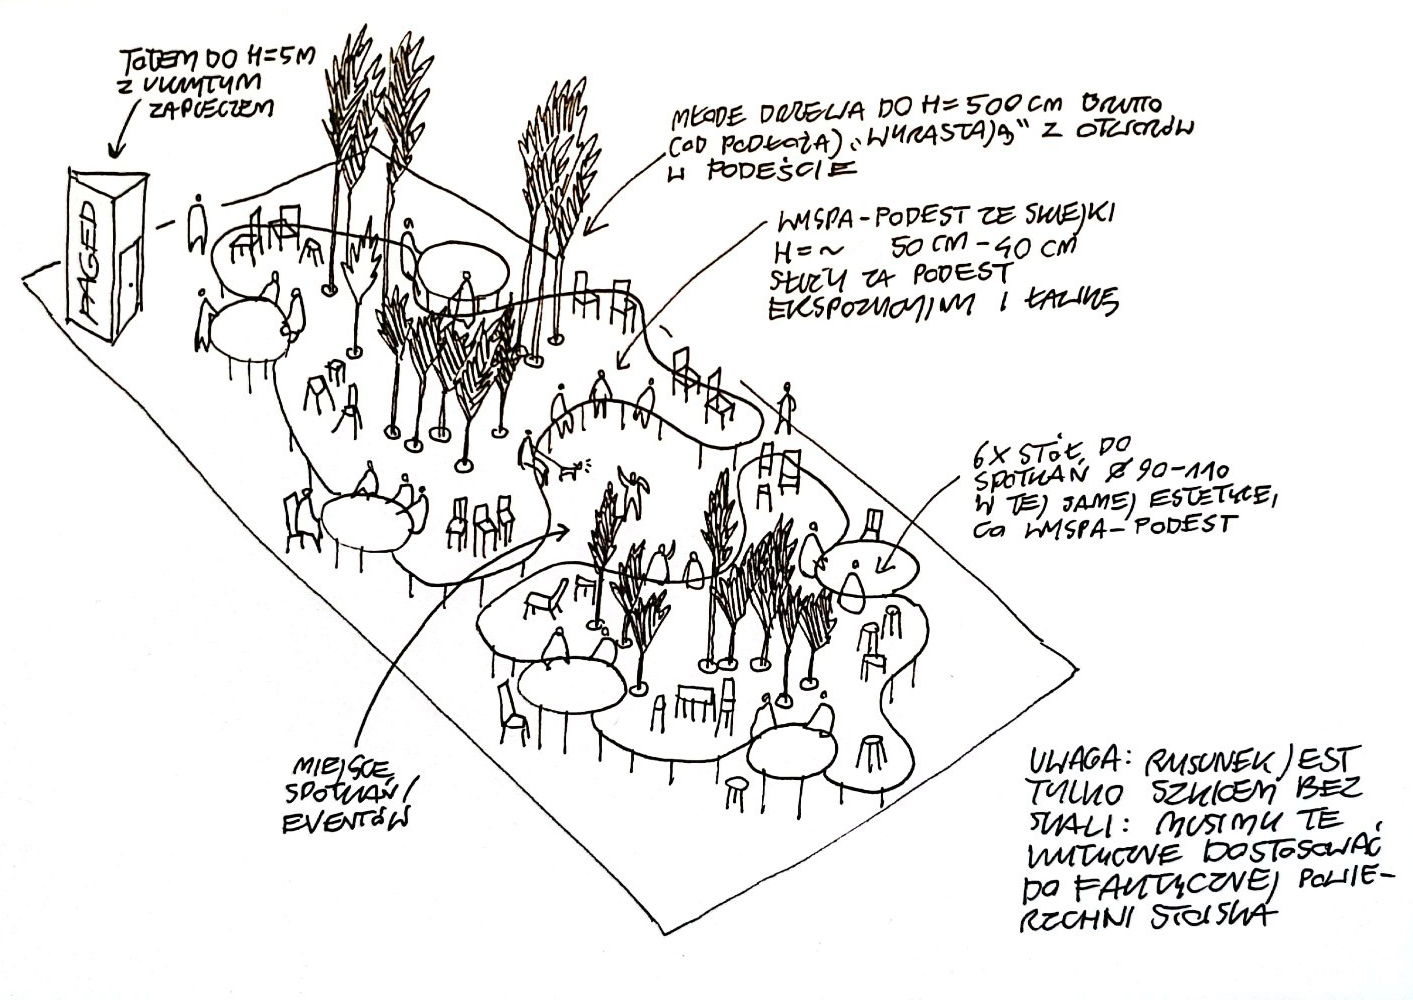 TOTEM DO H=5M
Z UKRYTYM
ZAPLECZEM
PAGED
MŁODE DRZEWA DO H=500 CM BRUTTO
(OD PODŁOŻA) „WYRASTAJĄ" Z OTWORÓW
W PODEŚCIE
WYSPA-PODEST ZE SKLEJKI
H=~ 50 CM-40 CM
SŁUŻY ZA PODEST
EKSPOZYCYJNY I ŁAWKĘ
6X STÓŁ DO
SPOTKAŃ Ø 90-110
W TEJ SAMEJ ESTETYCE,
CO WYSPA-PODEST
MIEJSCE
SPOTKAŃ/
EVENTÓW
UWAGA: RYSUNEK JEST
TYLKO SZKICEM BEZ
SKALI: MUSIMY TE
WYTYCZNE DOSTOSOWAĆ
DO FAKTYCZNEJ POWIE-
RZCHNI STOISKA